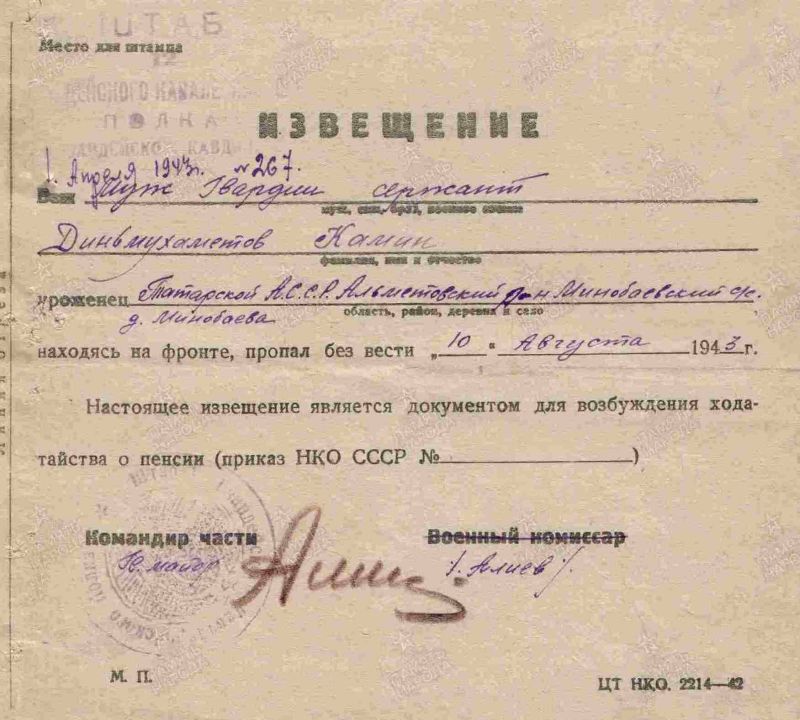 ШТАБ
Место для штампа
12
ДЕЙСКОГО КАВАЛЕ
ПОЛКА
КАВД
ИЗВЕЩЕНИЕ
1. Апреля 1943г. № 267.
Ваш муж Гвардии сержант
муж, сын, брат, военное звание
Диньмухаметов Камин
фамилия, имя и отчество
уроженец Татарской А.С.С.Р. Альметовский р-н Минобаевский с/с.
область, район, деревня и село
д. Минобаева
находясь на фронте, пропал без вести „10“ Августа 1943 г.
Настоящее извещение является документом для возбуждения хода-
тайства о пенсии (приказ НКО СССР № )
Командир части Военный комиссар
Гв. майор /Алиев/.
М. П.
ЦТ НКО. 2214—42